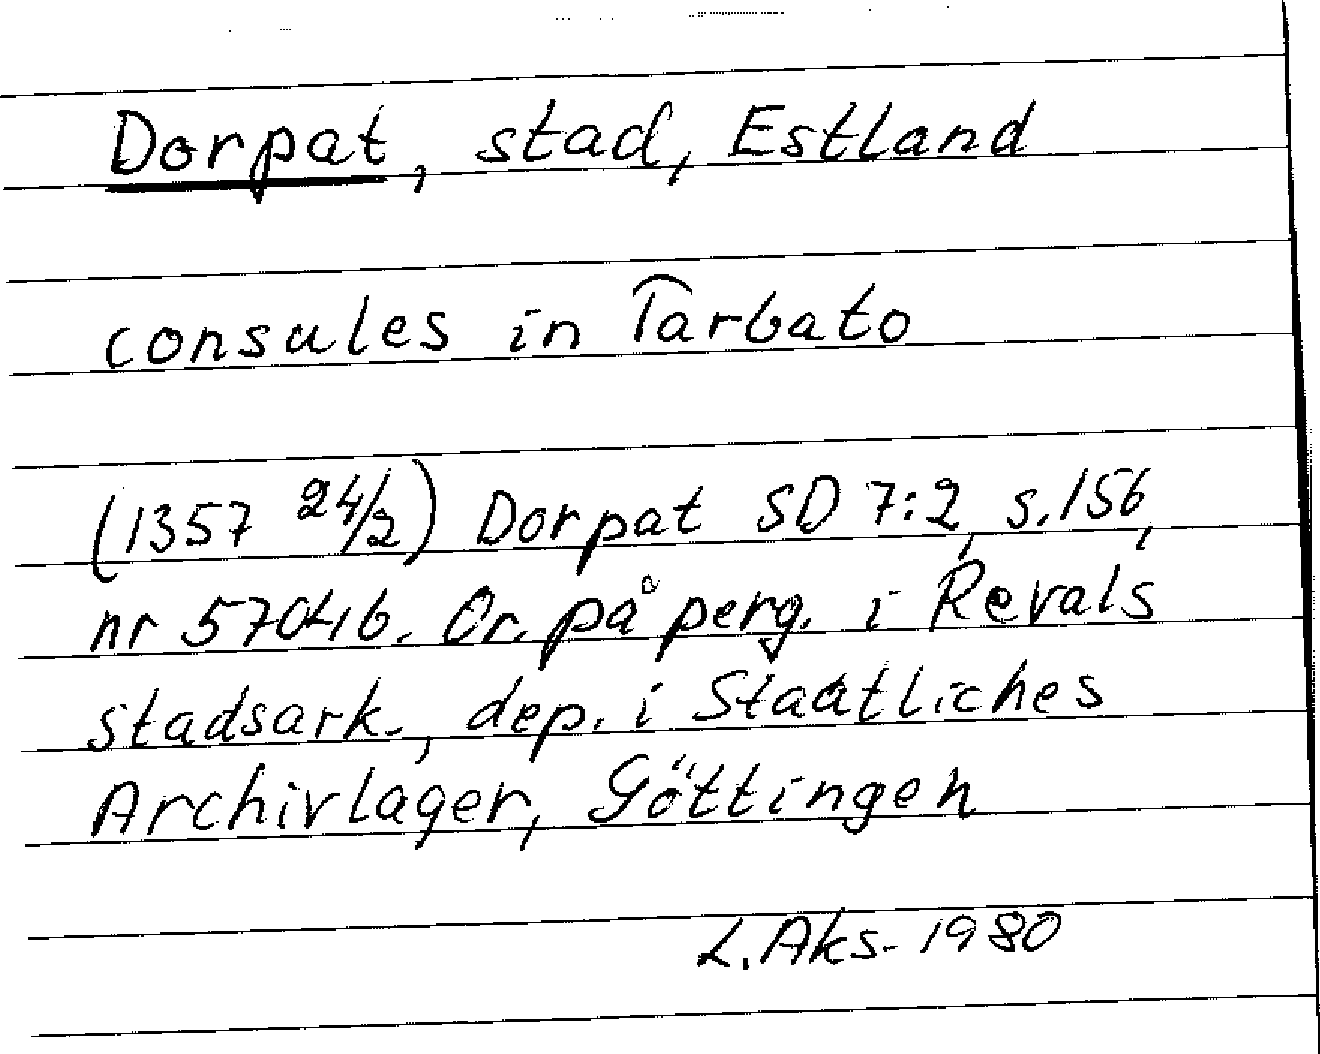 Dorpat, stad, Estland
consules in Tarbato
(1357 24/2) Dorpat SD 7:2, s. 156,
nr 5704b. Or. på perg. i Revals
stadsark., dep. i Staatliches
Archivlager, Göttingen
L. Aks. 1980